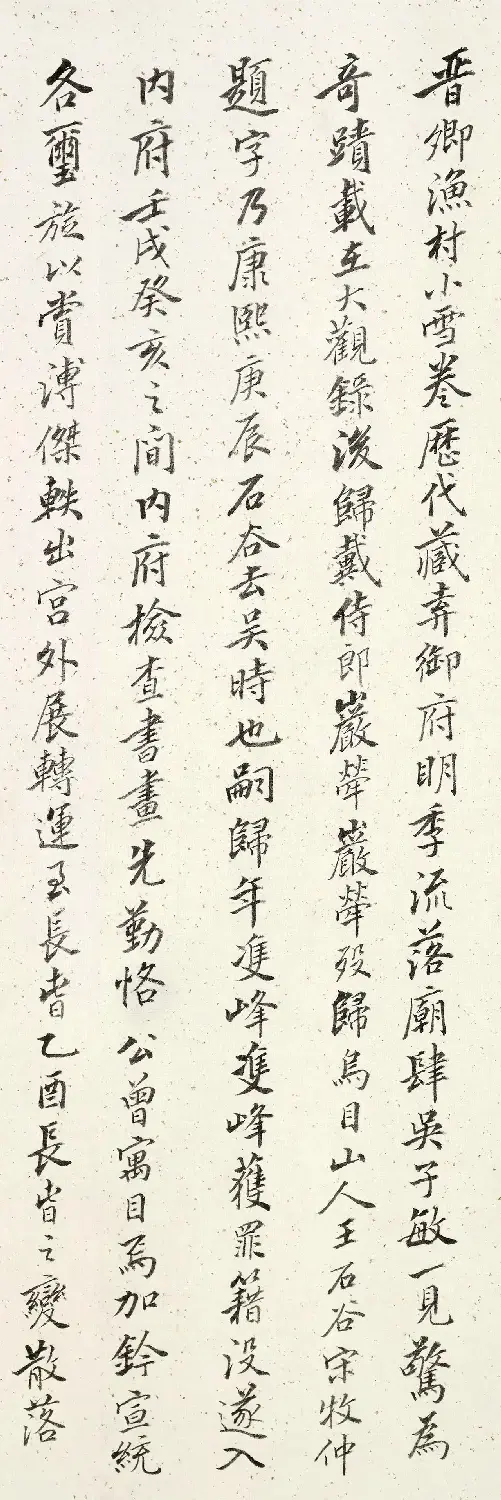 晋卿漁村小雪卷歷代藏弆御府明季流落廟肆吳子敏一見驚為
奇蹟載在大觀錄後歸戴侍郎巖犖巖犖歿歸烏目山人王石谷宋牧仲
題字乃康熙庚辰石谷去吴時也嗣歸年隻峰隻峰獲罪籍没遂入
内府壬戌癸亥之間内府檢查書畫先勤恪公曾寓目焉加鈐宣統
各璽旋以賞溥傑軼出宫外展轉運至長春乙酉長春之變散落